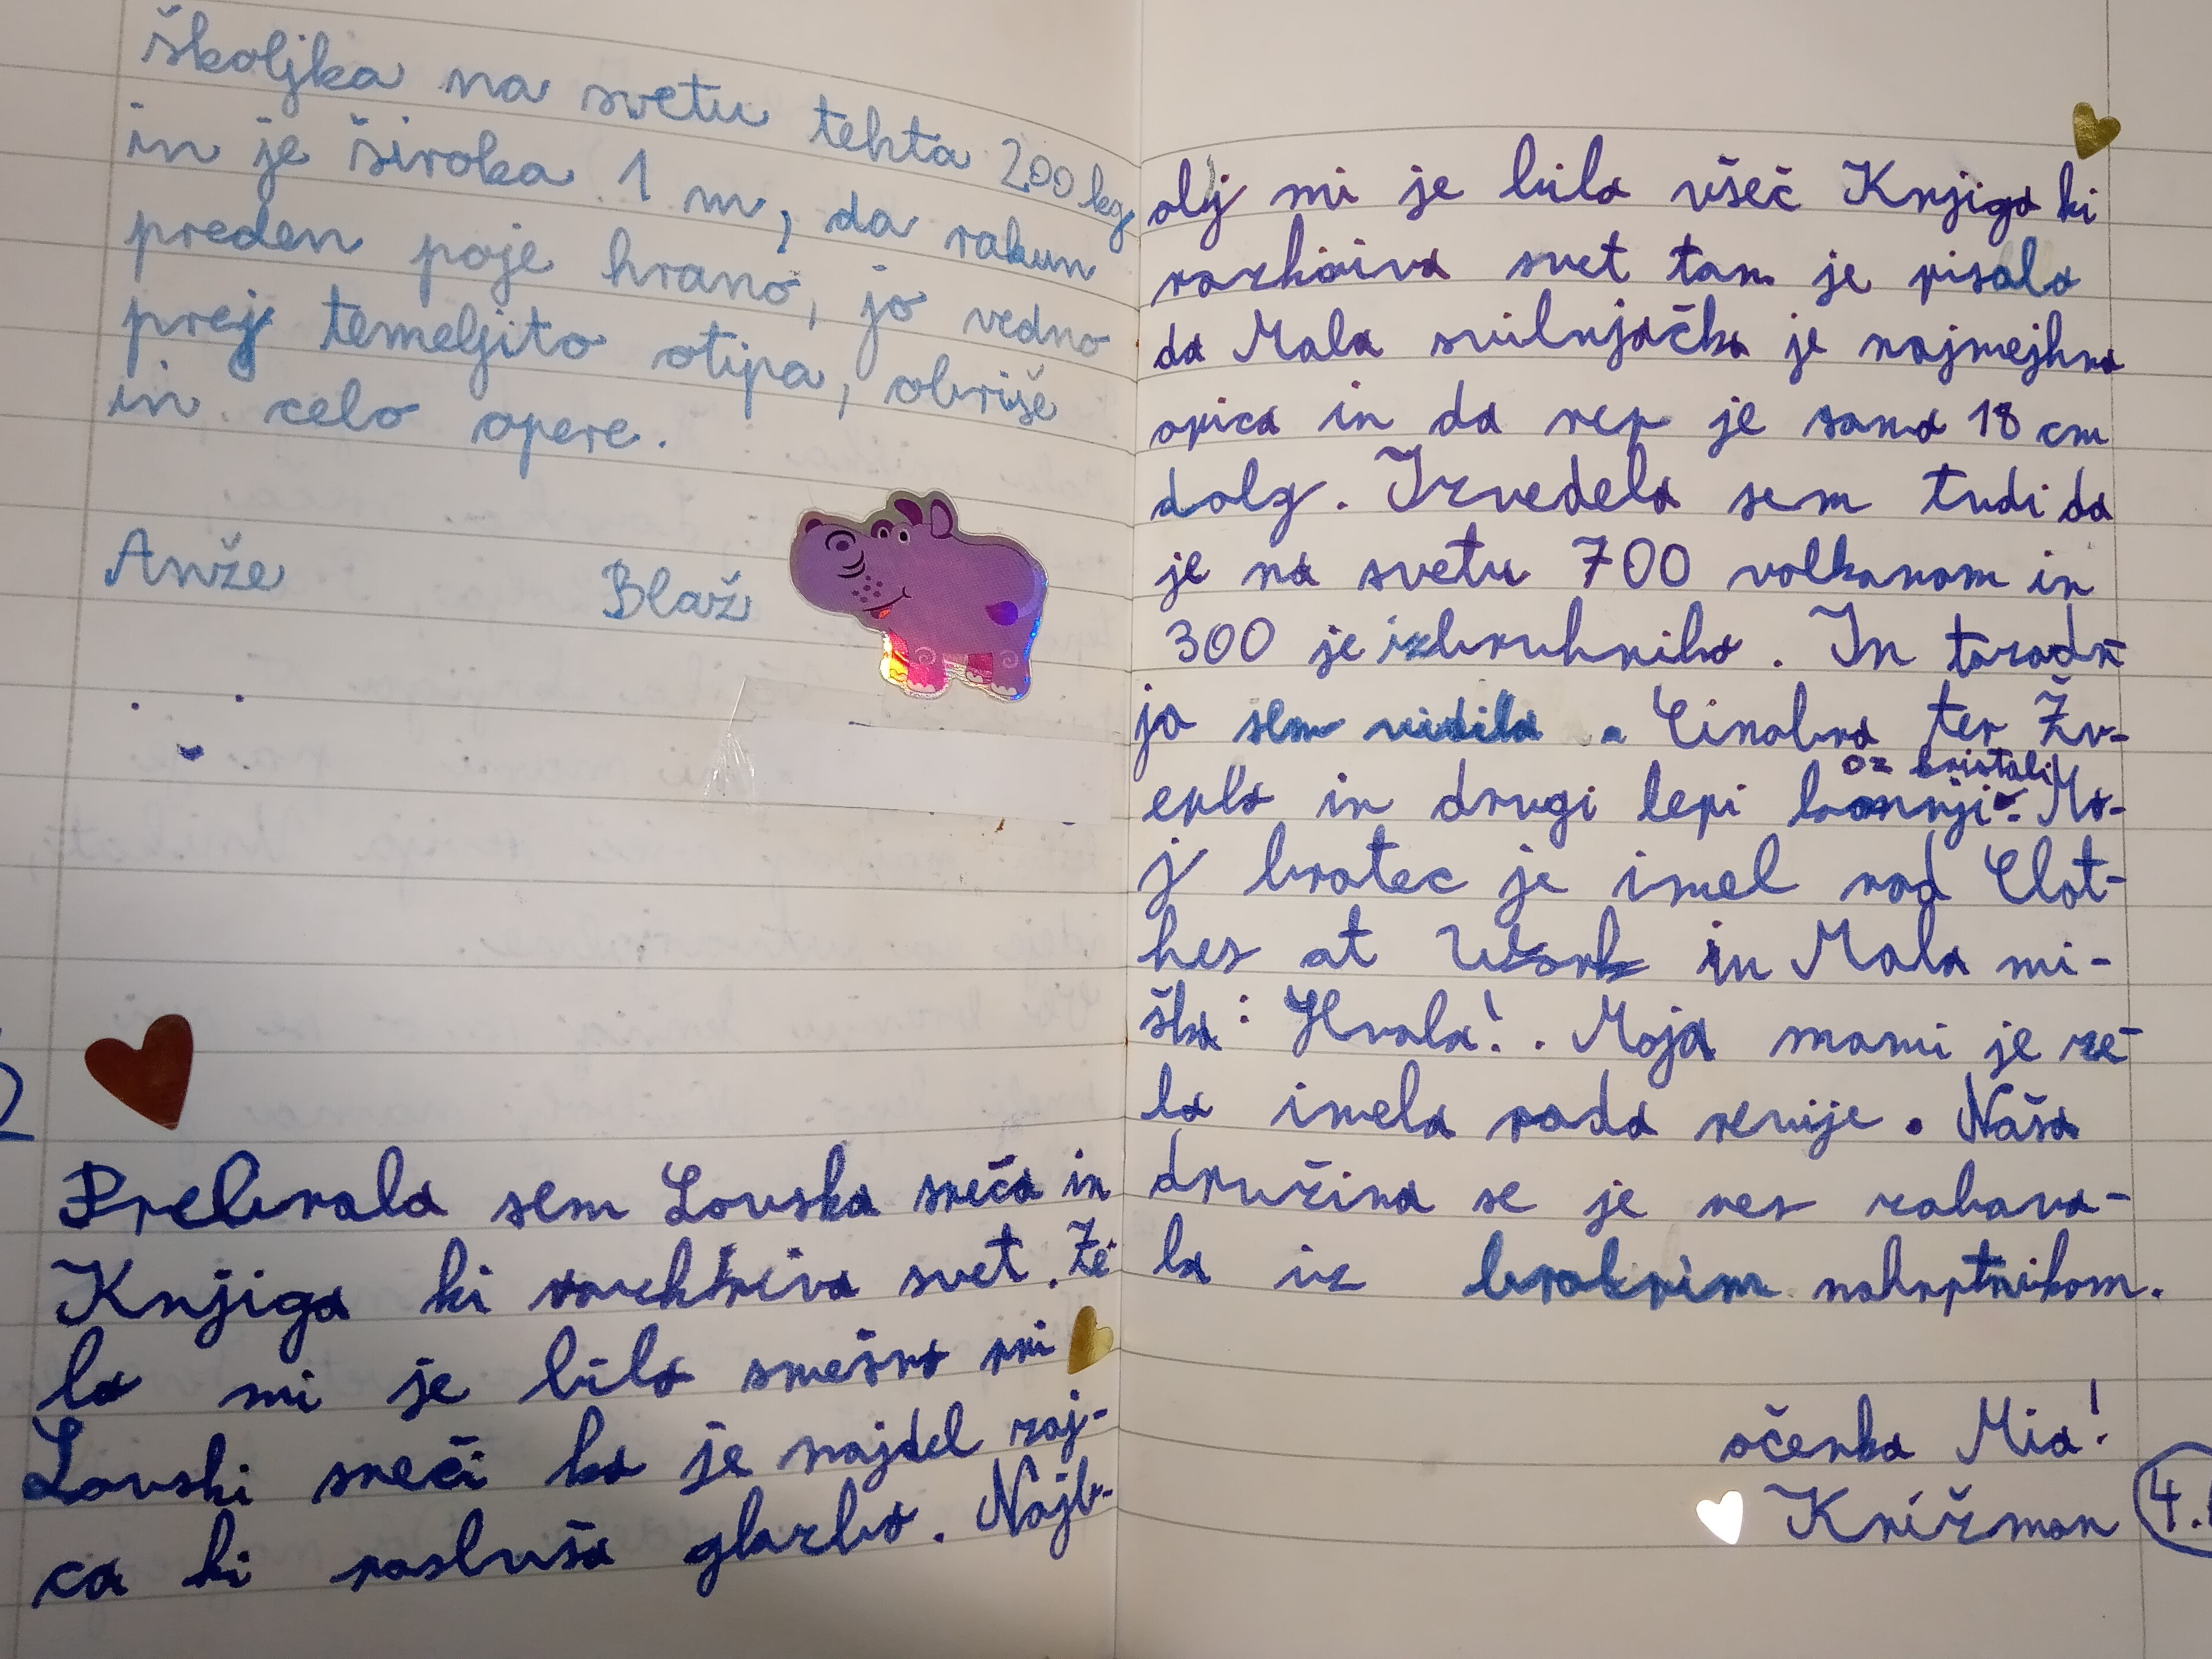 školjka na svetu tehta 200 kg
in je široka 1 m, da rakun
preden poje hrano, jo vedno
prej temeljito otipa, obriše
in celo opere.
Anže Blaž
Prebrala sem Lovska sreča in
Knjiga ki razkriva svet. Ze
la mi je bila smešno pri
Lovski sreči ko je najdel zaj-
ca ki posluša glazbo. Najb-
olj mi je bila všeč Knjiga ki
razkriva svet tam je pisalo
da Mala svilnjačka je najmejhna
opica in da rep je samo 18 cm
dolg. Izvedela sem tudi da
je na svetu 700 volkanom in
300 je izbruhnilo. In zaradi
ja sem vidila Cinobra ter Žv-
epla in drugi lepi kamnji
oz kristali Mo-
j bratec je imel rad Clot-
hes at Work in Mala mi-
ška: Hvala!. Moja mami je ze-
la imela rada revije. Naša
družina se je res zabava-
la iz bralnim nahrptnikom.
očenka Mia!
Knižman
4.